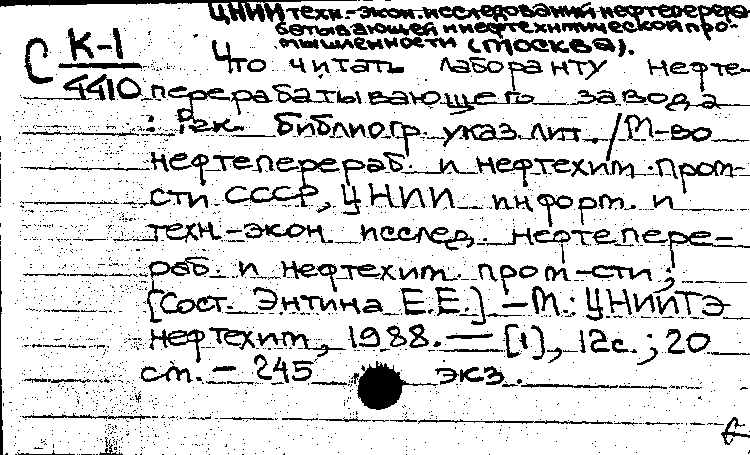 ЦНИИ техн.-экон. исследований нефтеперера-
батывающей и нефтехимической про-
мышленности (Москва).
С К-1
4410
Что читать лаборанту нефте-
перерабатывающего завода
: Рек. библиогр. указ. лит. / М-во
нефтеперераб. и нефтехим. пром-
сти СССР, ЦНИИ информ. и
техн.-экон. исслед. нефтепере-
раб. и нефтехим. пром-сти;
[Сост. Энтина Е.Е.] – М.: ЦНИИТЭ
нефтехим, 1988. — [1], 12с.; 20
см. – 245 экз.